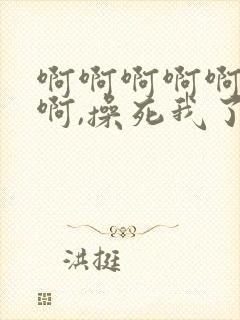 啊啊啊啊啊
啊,操死我了
洪挺